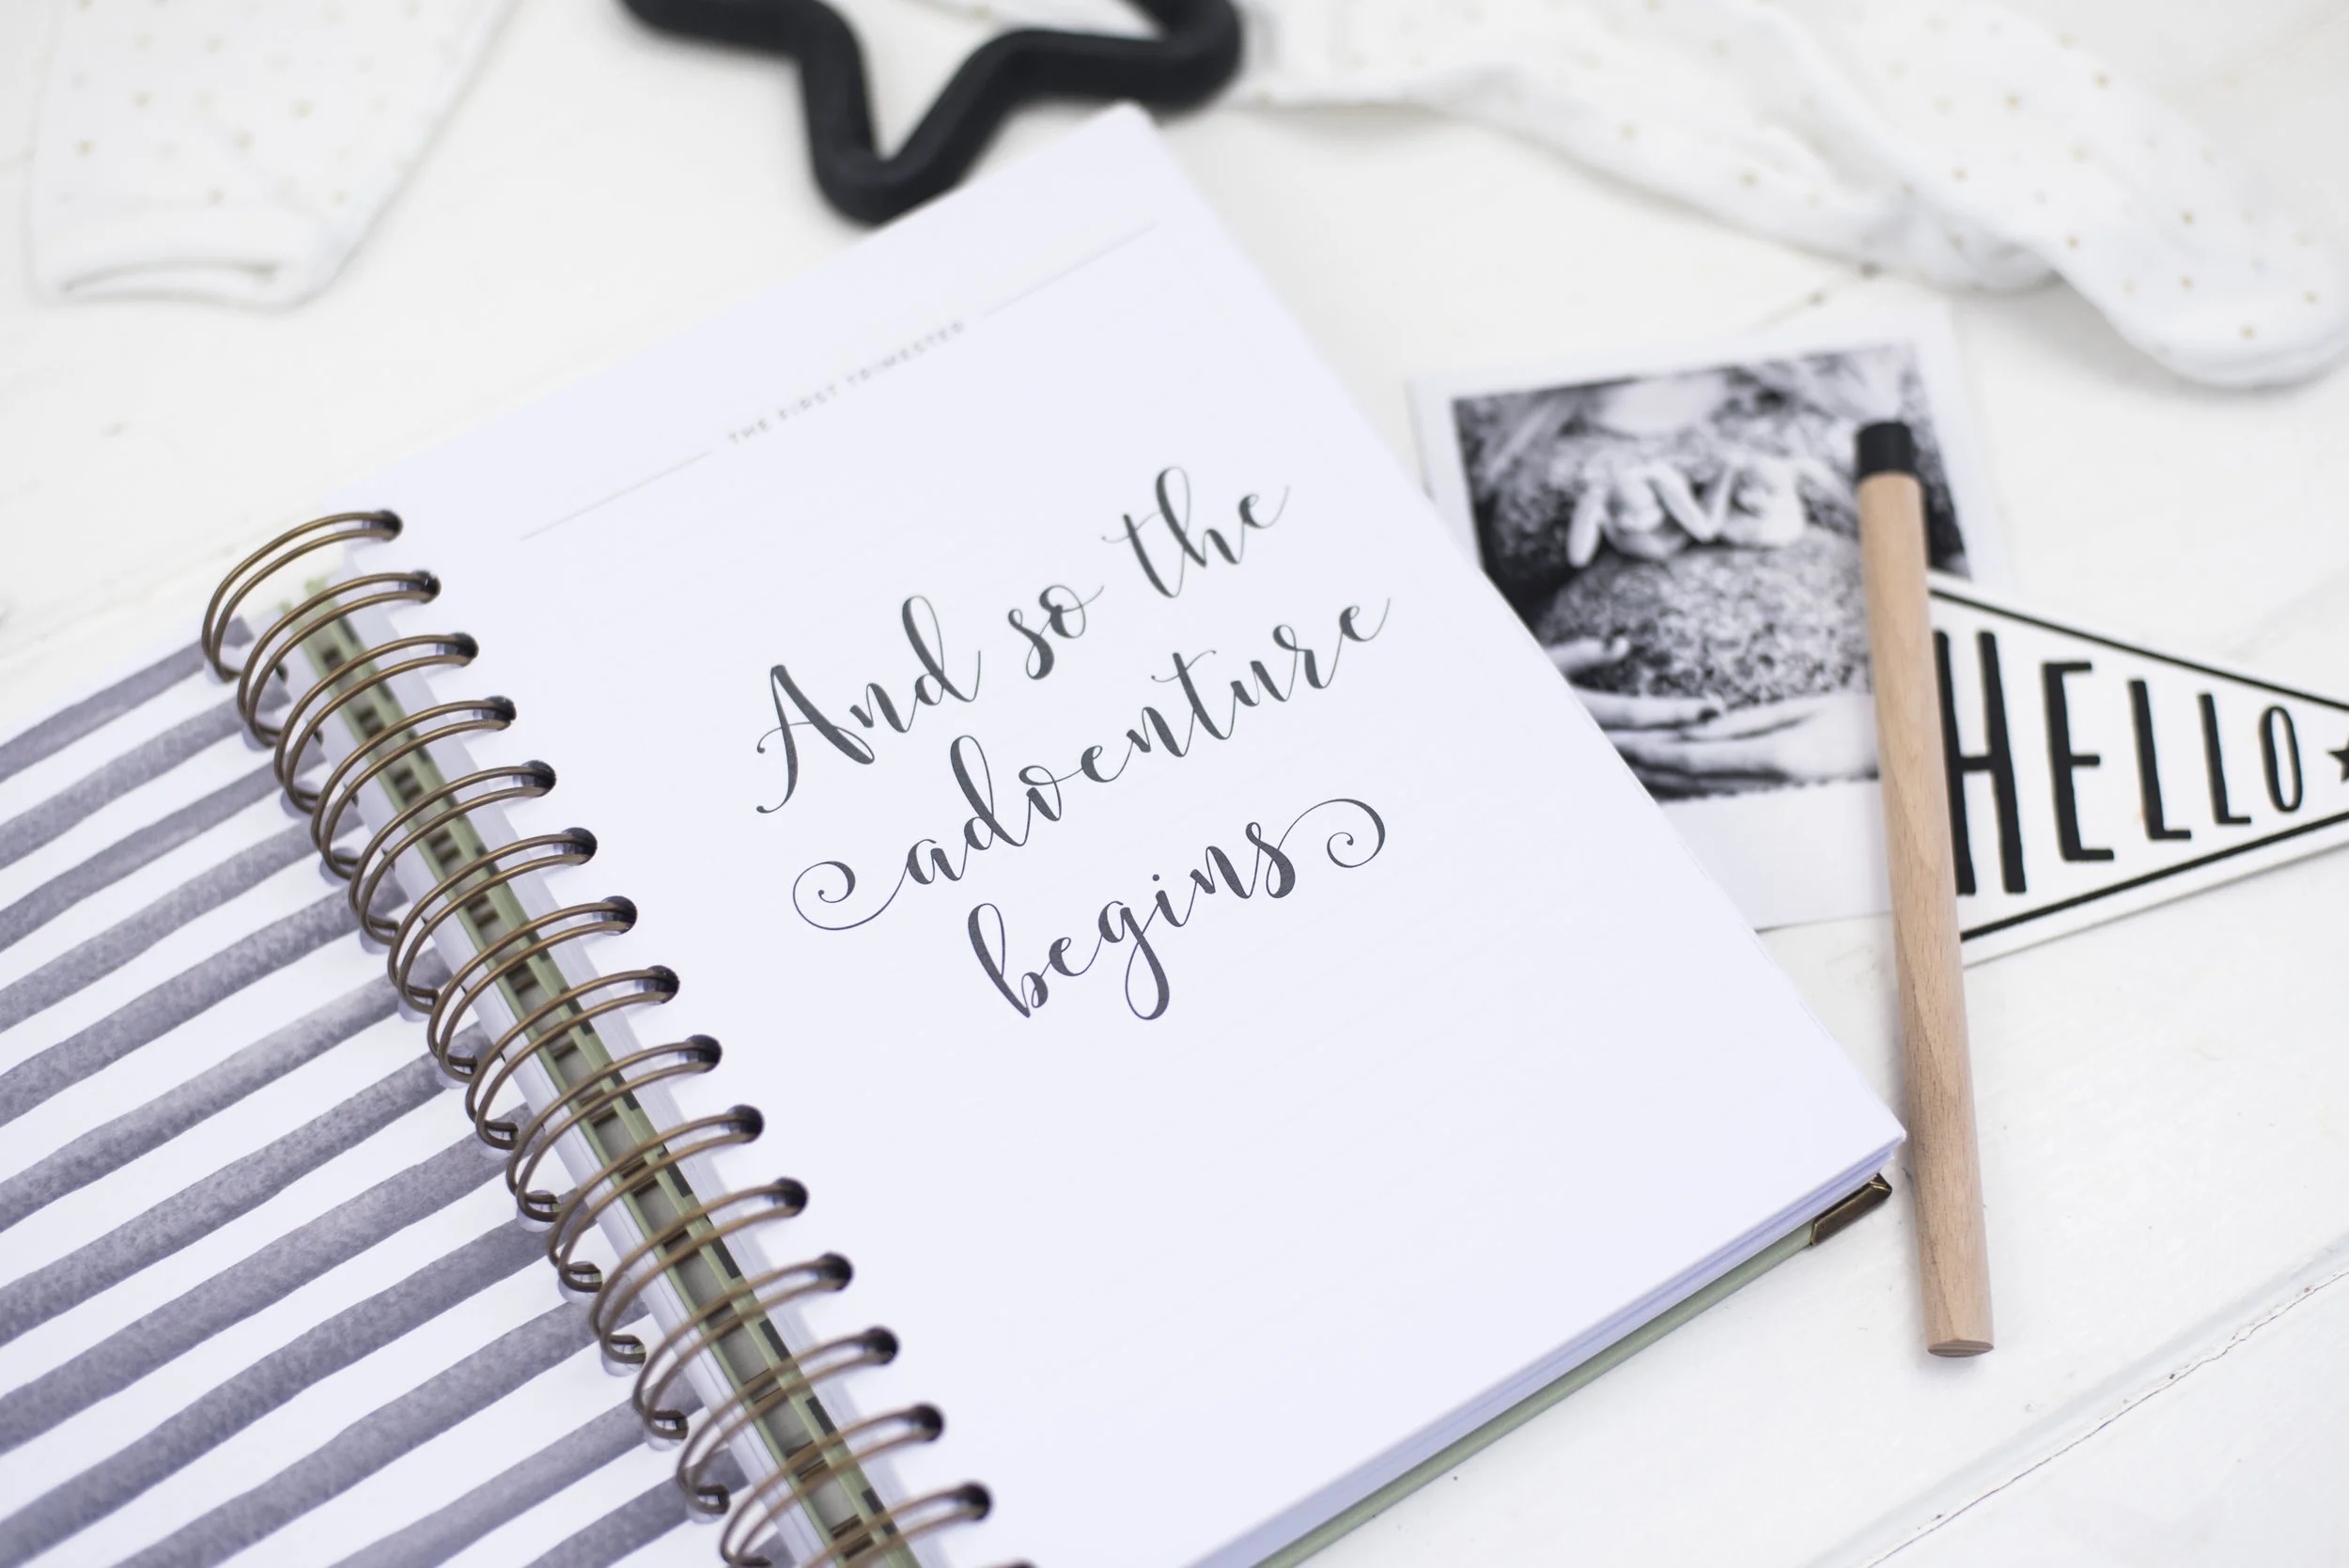 THE FIRST TRIMESTER
And so the
adventure
begins
HELLO